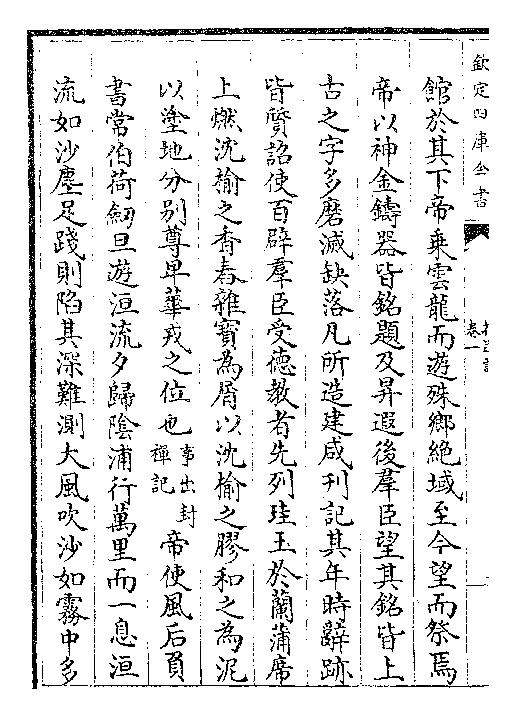 欽定四庫全書
卷一
館於其下帝乘雲龍而遊殊鄉絶域至今望而祭焉
帝以神金鑄器皆銘題及昇遐後羣臣望其銘皆上
古之字多磨滅缺落凡所造建咸刋記其年時辭跡
皆質詔使百辟羣臣受德教者先列珪玉於蘭蒲席
上燃沈榆之香舂雜寳為屑以沈榆之膠和之為泥
以塗地分别尊卑華戎之位也事出封禪記帝使風后負
書常伯荷劒旦遊洹流夕歸陰浦行萬里而一息洹
流如沙塵足踐則陷其深難測大風吹沙如霧中多